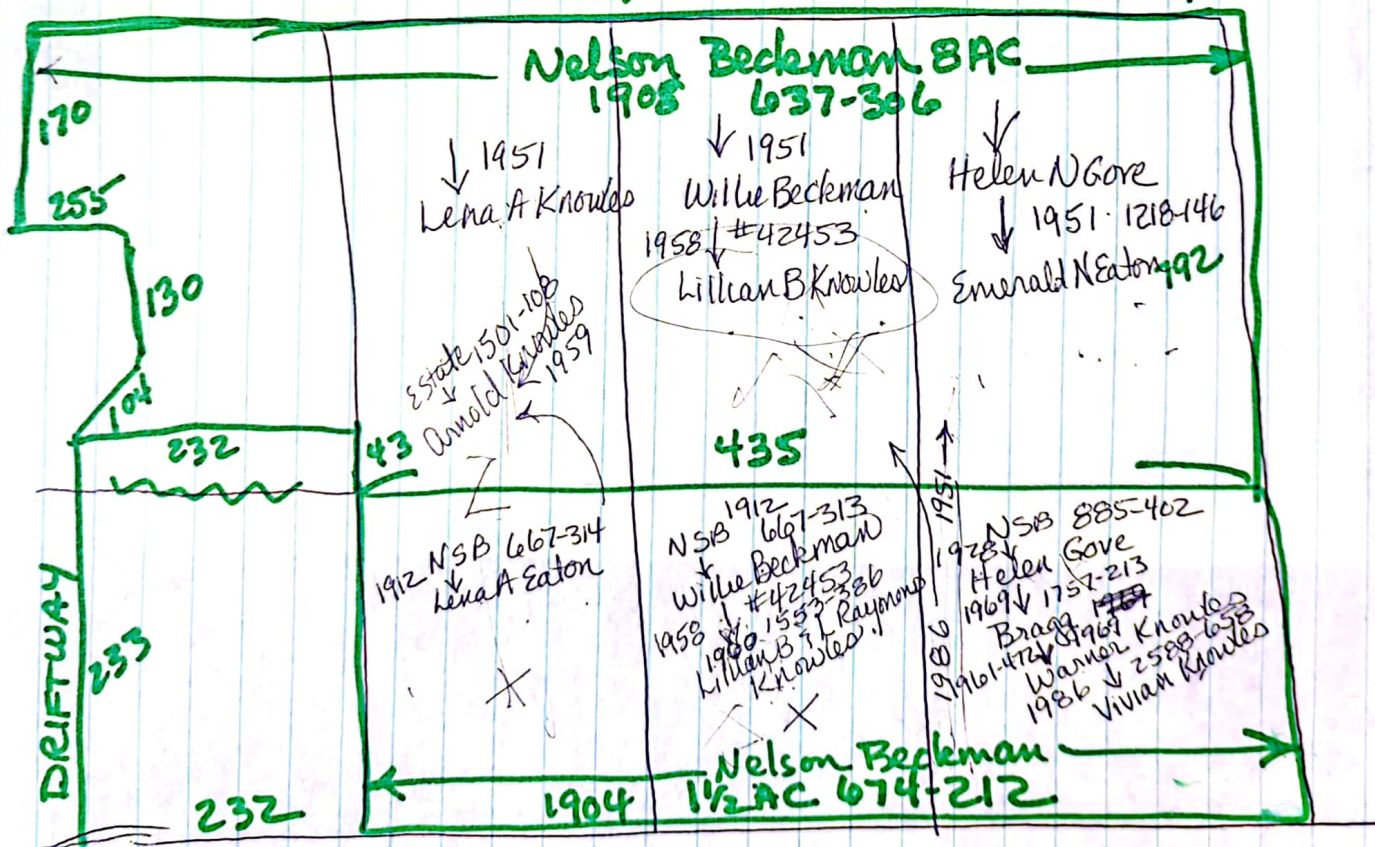 Nelson Beckman 8AC
1908 637-306
170
255
130
104
232
↓ 1951
Lena A Knowles
Estate 1501-108
↓
Arnold Knowles
1959
43
↓ 1951
Willie Beckman
1958 ↓ #42453
Lillian B Knowles
435
↓
Helen N Gove
↓ 1951. 1218-146
Emerald N Eaton
492
DRIFTWAY
233
232
1912 NSB 667-314
↓
Lena A Eaton
1912
NSB 667-313
↓
Willie Beckman
↓ #42453
1958 ↓ 1553-386
1960
Lillian B & Raymond
Knowles
1986 1951 →
NSB 885-402
1928 ↓
Helen Gove
1969 ↓ 1757-213
Bragg
1961-472 ↓ 1969
Warner Knowles
1986 ↓ 2588-658
Vivian Knowles
Nelson Beckman
1904 1½ AC 674-212